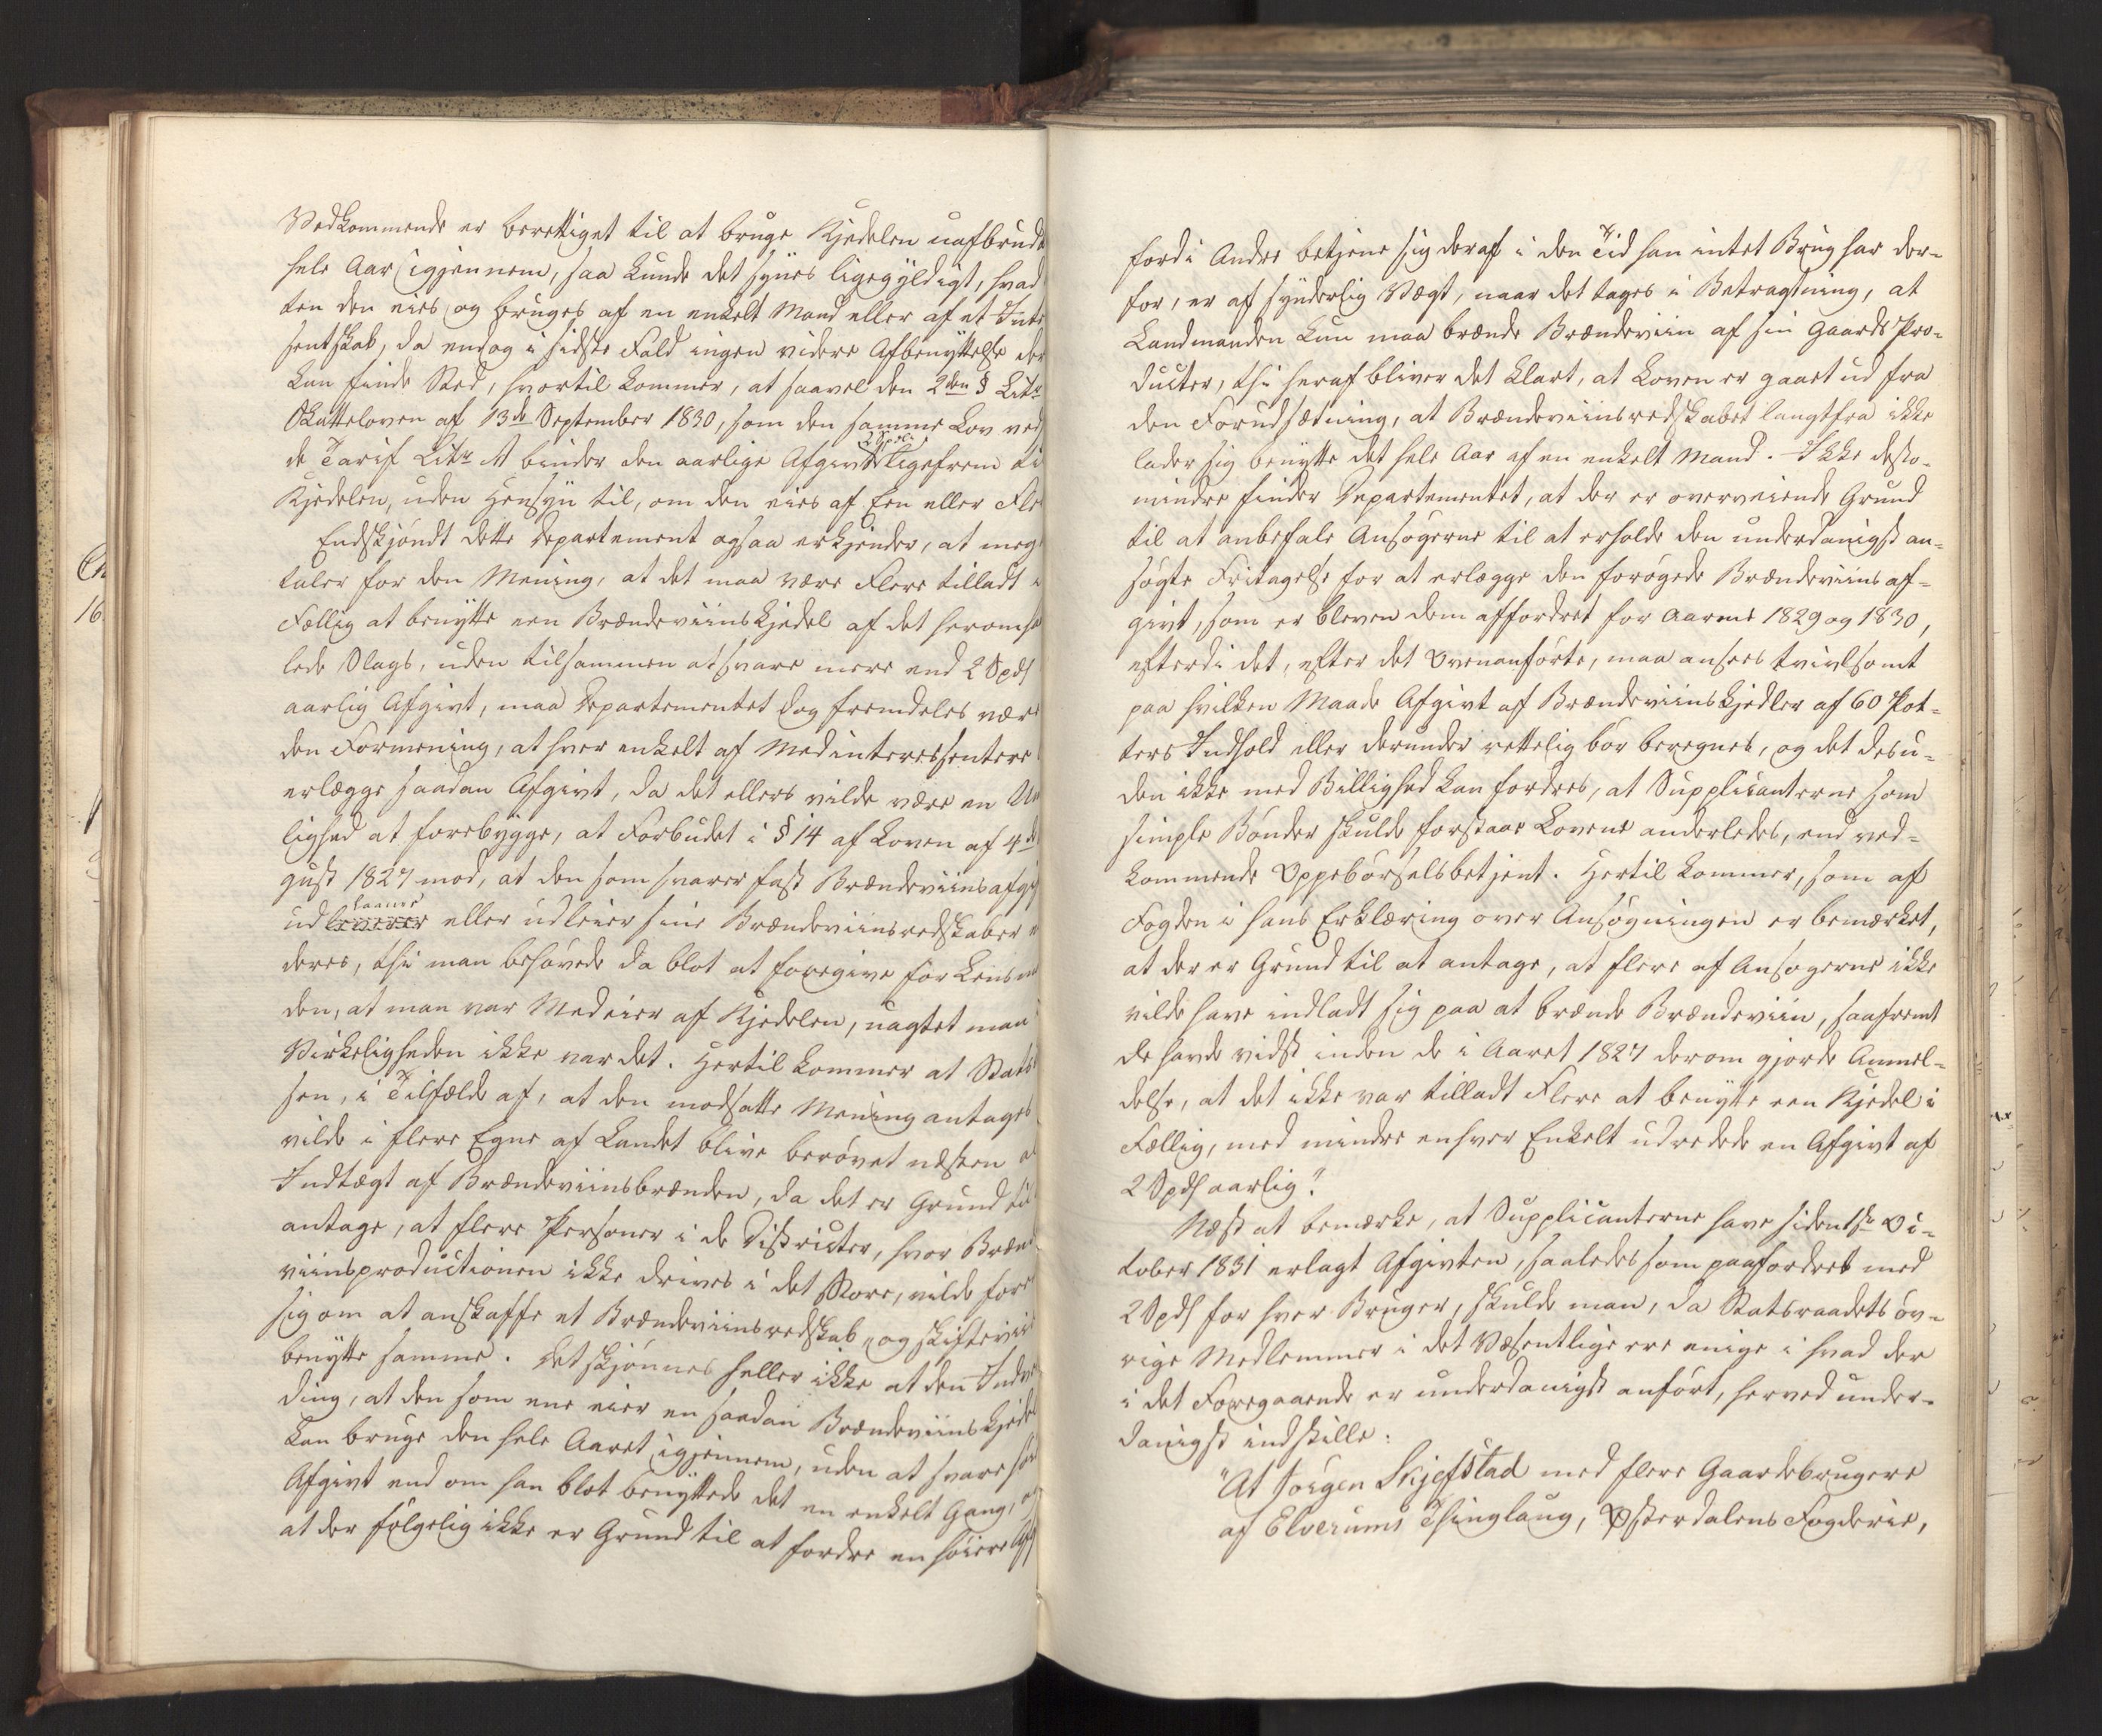 Vedkommende er berettiget til at bruge Kjedelen uafbrudt
hele Aar igjennem, saa kunde det synes ligegyldigt, hvad
ten den eies og bruges af en enkelt Mand eller af et Inte
sentskab, da endog i sidste Fald ingen videre Afbenyttelse der
kan finde Sted, hvortil kommer, at saavel den 2den § Litr
Skatteloven af 13de September 1830, som den samme Lov ved
2 Spdlr
de Tarif Litr A binder den aarlige Afgivt ligefrem ti
Kjedelen, uden Hensyn til, om den eies af Een eller Fle
Endskjøndt dette Departement ogsaa erkjender, at meg
taler for den Mening, at det maa være Flere tilladt i
Fællig at benytte een Brændeviinskjedel af det heromha
lede Slags, uden tilsammen at svare mere end 2 Spd
aarlig Afgivt, maa Departementet dog fremdeles være
den Formening, at hver enkelt af Medinteressentere
erlægge saadan Afgivt, da det ellers vilde være en Um
lighed at forebygge, at Forbudet i § 14 af Loven af 4de
gust 1827 mod, at den som svarer fast Brændeviinsafgi
laaner
ud eller udleier sine Brændeviinsredskaber
deres, thi man behøvede da blot at foregive for Lensm
den, at man var Medeier af Kjedelen, uagtet man
Virkeligheden ikke var det. Hertil kommer at Stats
sen, i Tilfælde af, at den modsatte Mening antages
vilde i flere Egne af Landet blive berøvet næsten al
Indtægt af Brændeviinsbrænden, da det er Grund til
antage, at flere Personer i de Districter, hvor Bræn
viinsproductionen ikke drives i det Store, vilde fore
sig om at anskaffe et Brændeviinsredskab, og skifteviis
benytte samme. Det skjønnes heller ikke at den Indve
ding, at den som ene eier en saadan Brændeviinskjede
kan bruge den hele Aaret igjennem, uden at svare hø
Afgivt end om han blot benyttede det en enkelt Gang, o
at der følgelig ikke er Grund til at fordre en høiere Afg
fordi Andre betjene sig deraf i den Tid han intet Brug har der-
for, er af synderlig Vægt, naar det tages i Betragtning, at
Landmanden kun maa brænde Brændeviin af sin Gaards Pro-
ducter, thi heraf bliver det klart, at Loven er gaaet ud fra
den Forudsætning, at Brændeviinsredskabet langtfra ikke
lader sig benytte det hele Aar af en enkelt Mand. Ikke desto-
mindre finder Departementet, at der er overveiende Grund
til at anbefale Ansøgerne til at erholde den underdanigst an-
søgte Fritagelse for at erlægge den forøgede Brændeviinsaf-
givt, som er bleven dem affordret for Aarene 1829 og 1830,
efterdi det, efter det Ovenanførte, maa ansees tvivlsomt
paa hvilken Maade Afgivt af Brændeviinskjedler af 60 Pot-
ters Indhold eller derunder rettelig bør beregnes, og det desu-
den ikke med Billighed kan fordres, at Supplicanterne som
simple Bønder skulde forstaae Lovene anderledes, end ved-
kommende Oppebørselsbetjent. Hertil kommer, som af
Fogden i hans Erklæring over Ansøgningen er bemærket,
at der er Grund til at antage, at flere af Ansøgerne ikke
vilde have indladt sig paa at brænde Brændeviin, saafremt
de havde vidst inden de i Aaret 1827 derom gjorde Anmel-
delse, at det ikke var tilladt Flere at benytte een Kjedel i
Fællig, med mindre enhver Enkelt udredede en Afgivt af
2 Spd aarlig."
Næst at bemærke, at Supplicanterne have siden 1ste Oc-
tober 1831 erlagt Afgivten, saaledes som paafordret med
2 Spd for hver Bruger, skulde man, da Statsraadets øv-
rige Medlemmer i det Væsentlige ere enige i hvad der
i det Foregaaende er underdanigst anført, herved under-
danigst indstille:
"At Jørgen Skjefstad med flere Gaardebrugere
af Elverums Thinglaug, Østerdalens Fogderie,